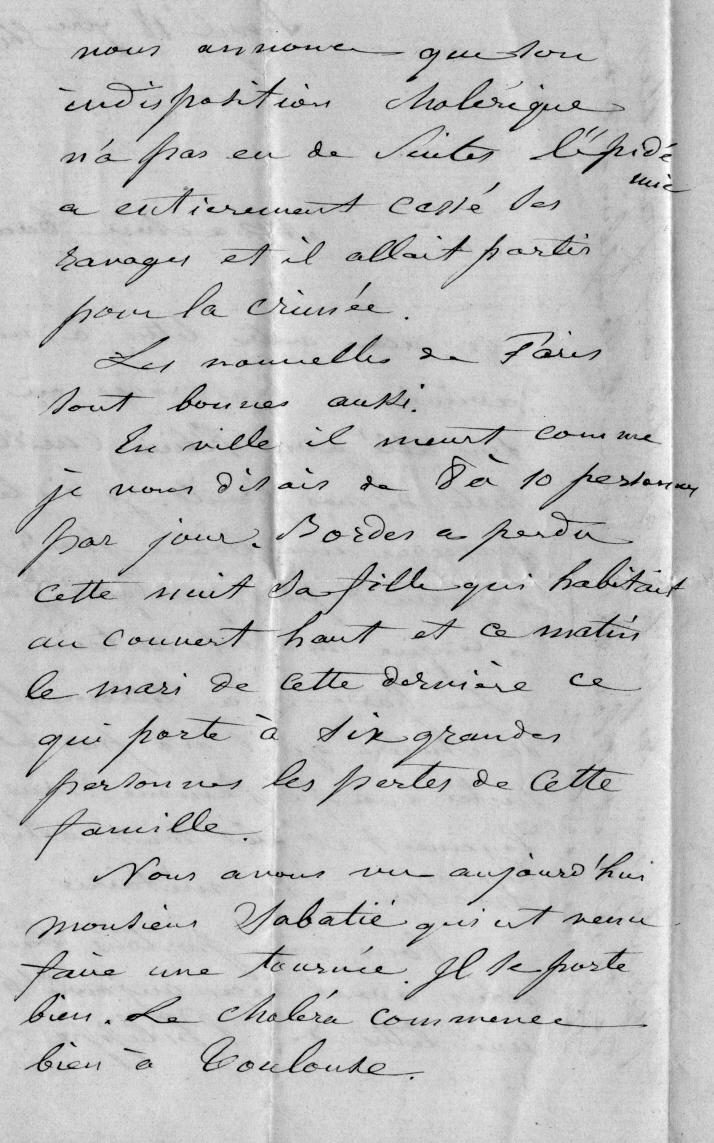 nous annonce que son
indisposition cholérique
n'a pas eu de suites l'épidé
mie
a entierement cessé ses
ravages et il allait partir
pour la crimée.
Les nouvelles de Paris
sont bonnes aussi.
En ville il meurt comme
je vous disais de 8 à 10 personnes
par jour. Bordes a perdu
cette nuit sa fille qui habitait
au couvert haut et ce matin
le mari de cette dernière ce
qui porte à six grandes
personnes les pertes de cette
famille.
Nous avons vu aujourd'hui
monsieur Sabatié qui est venu
faire une tournée. Il se porte
bien. Le choléra commence
bien à Toulouse.